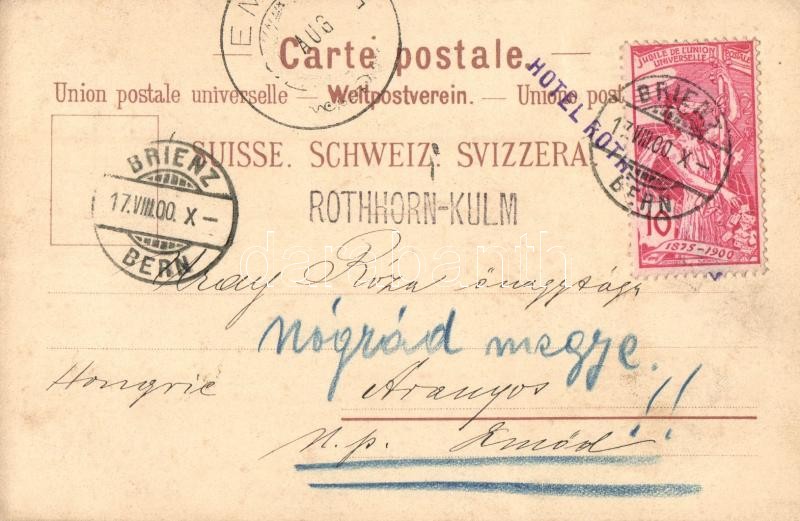 EM
AUG
Carte postale.
Union postale universelle – Weltpostverein. – Unione post
SUISSE. SCHWEIZ. SVIZZERA
HOTEL ROTH
JUBILÉ DE L'UNION POSTALE
UNIVERSELLE
BRIENZ
17.VIII.00. X –
BERN
10
1875-1900
BRIENZ
17.VIII.00. X –
BERN
ROTHHORN-KULM
darabanth
Róza önagysága
Nógrád megye.
Hongrie
Aranyos !!
u.p. Emőd